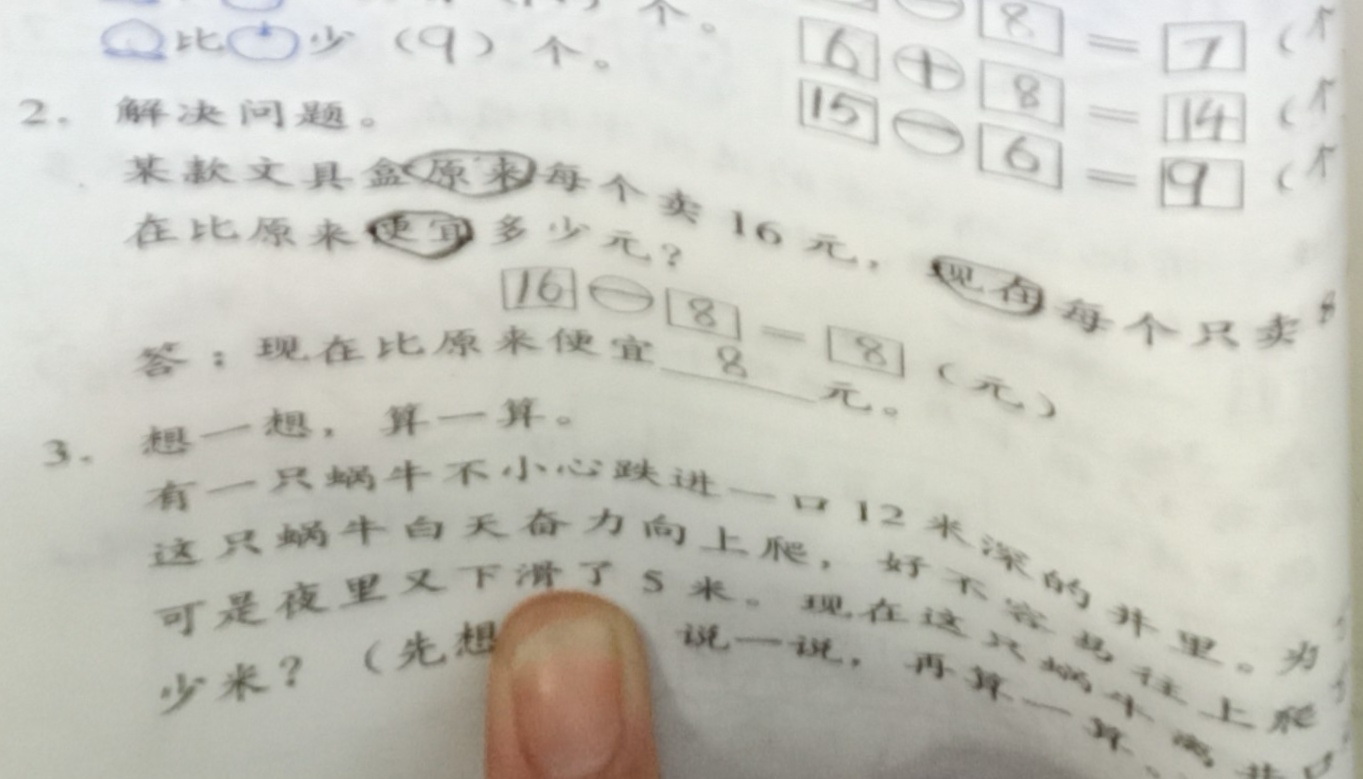 个。
比 少（9）个。
8 = 7（个
6 + 8 = 14（个
15 － 6 = 9（个
2. 解决问题。
某款文具盒原来每个卖16元，现在每个只卖8
在比原来便宜多少元？
16 － 8 = 8（元）
答：现在比原来便宜 8 元。
3. 想一想，算一算。
有一只蜗牛不小心跌进一口12米深的井里。为
这只蜗牛白天奋力向上爬，好不容易往上爬
可是夜里又下滑了5米。现在这只蜗牛离井口
少米？（先想 说一说，再算一算。